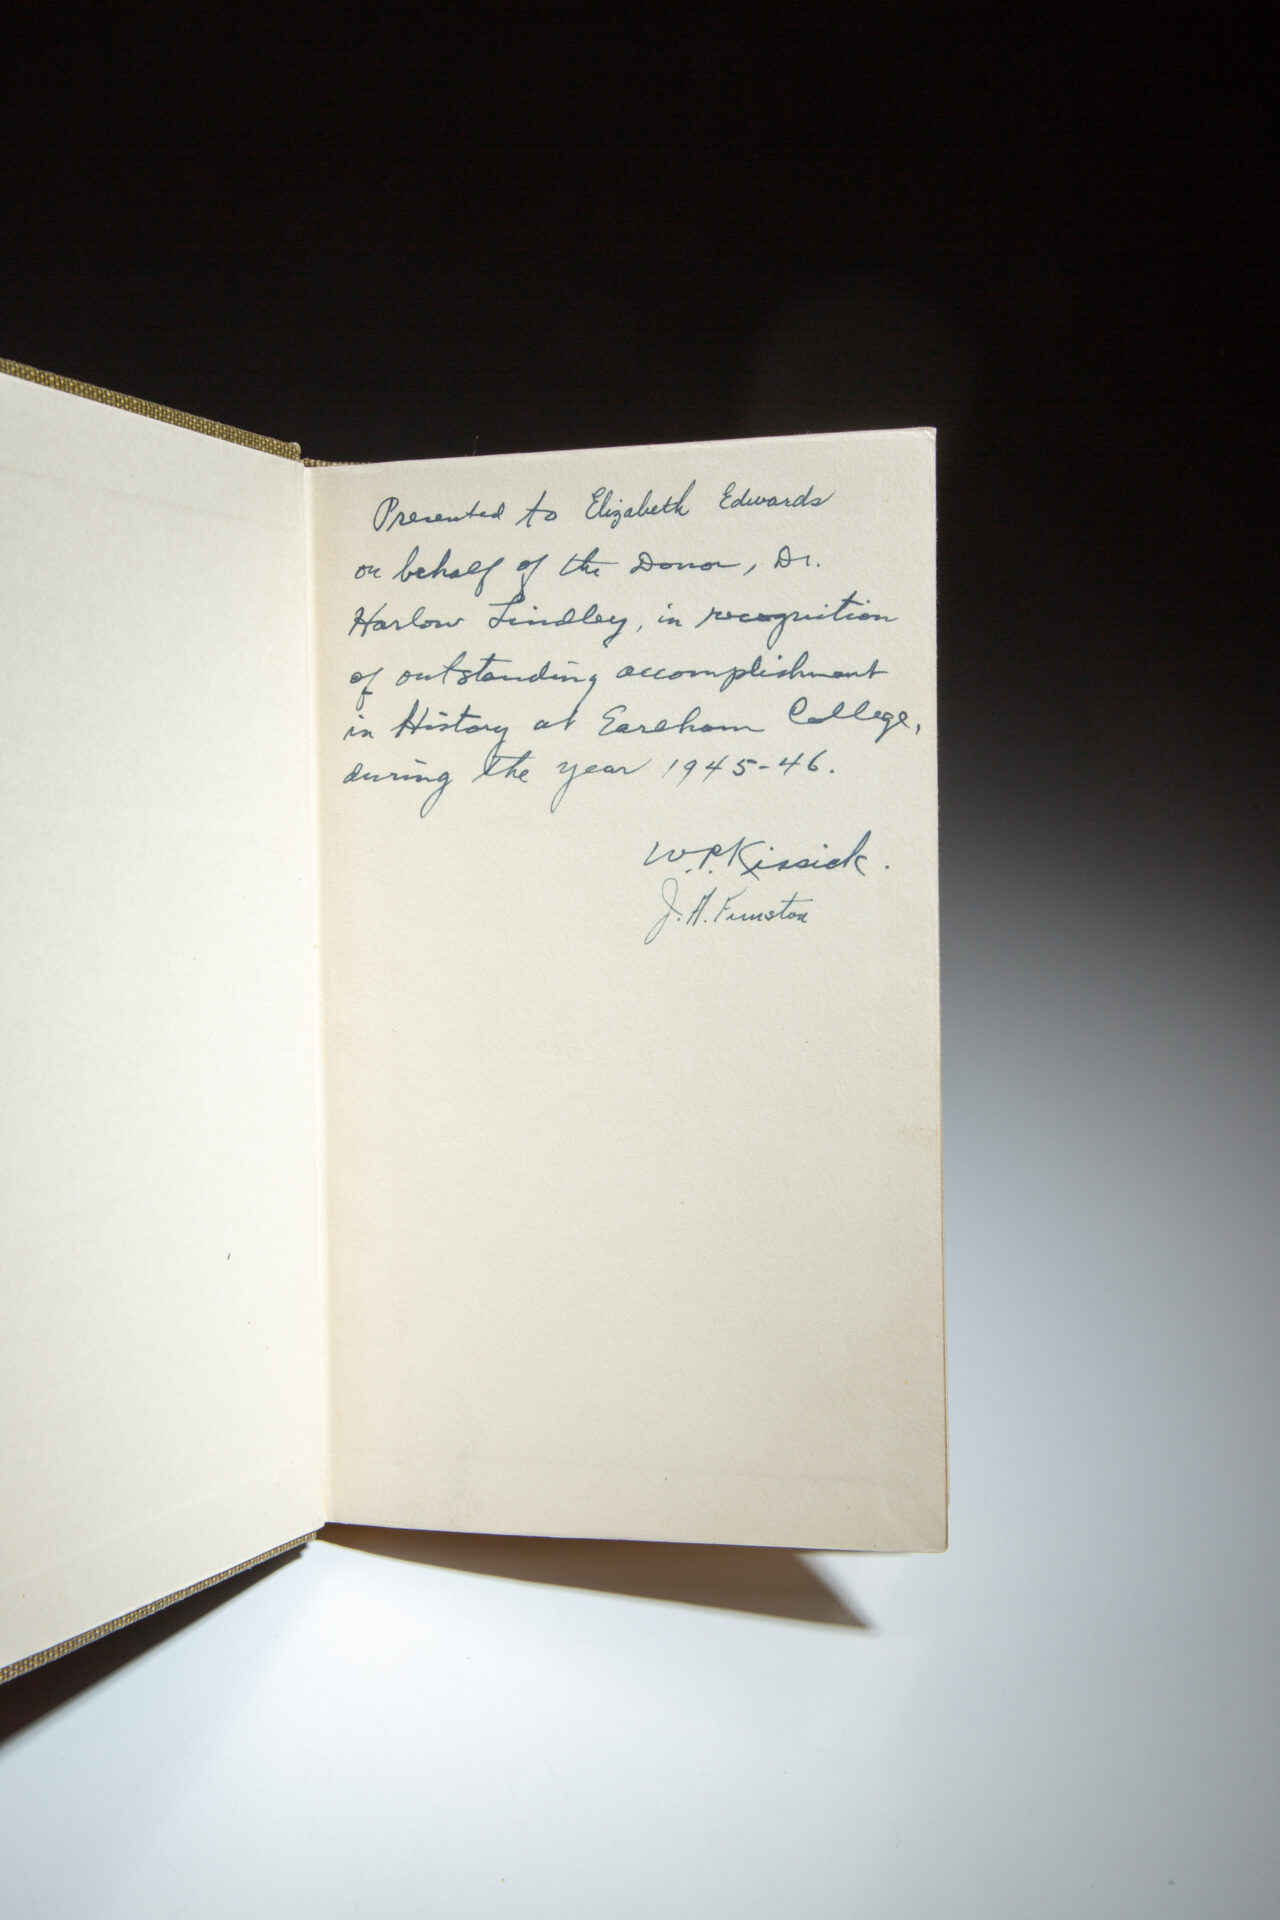 Presented to Elizabeth Edwards
on behalf of the Donor, Dr.
Harlow Lindley, in recognition
of outstanding accomplishment
in History at Earlham College,
during the year 1945-46.
W.P. Kissick.
J.A. Funston